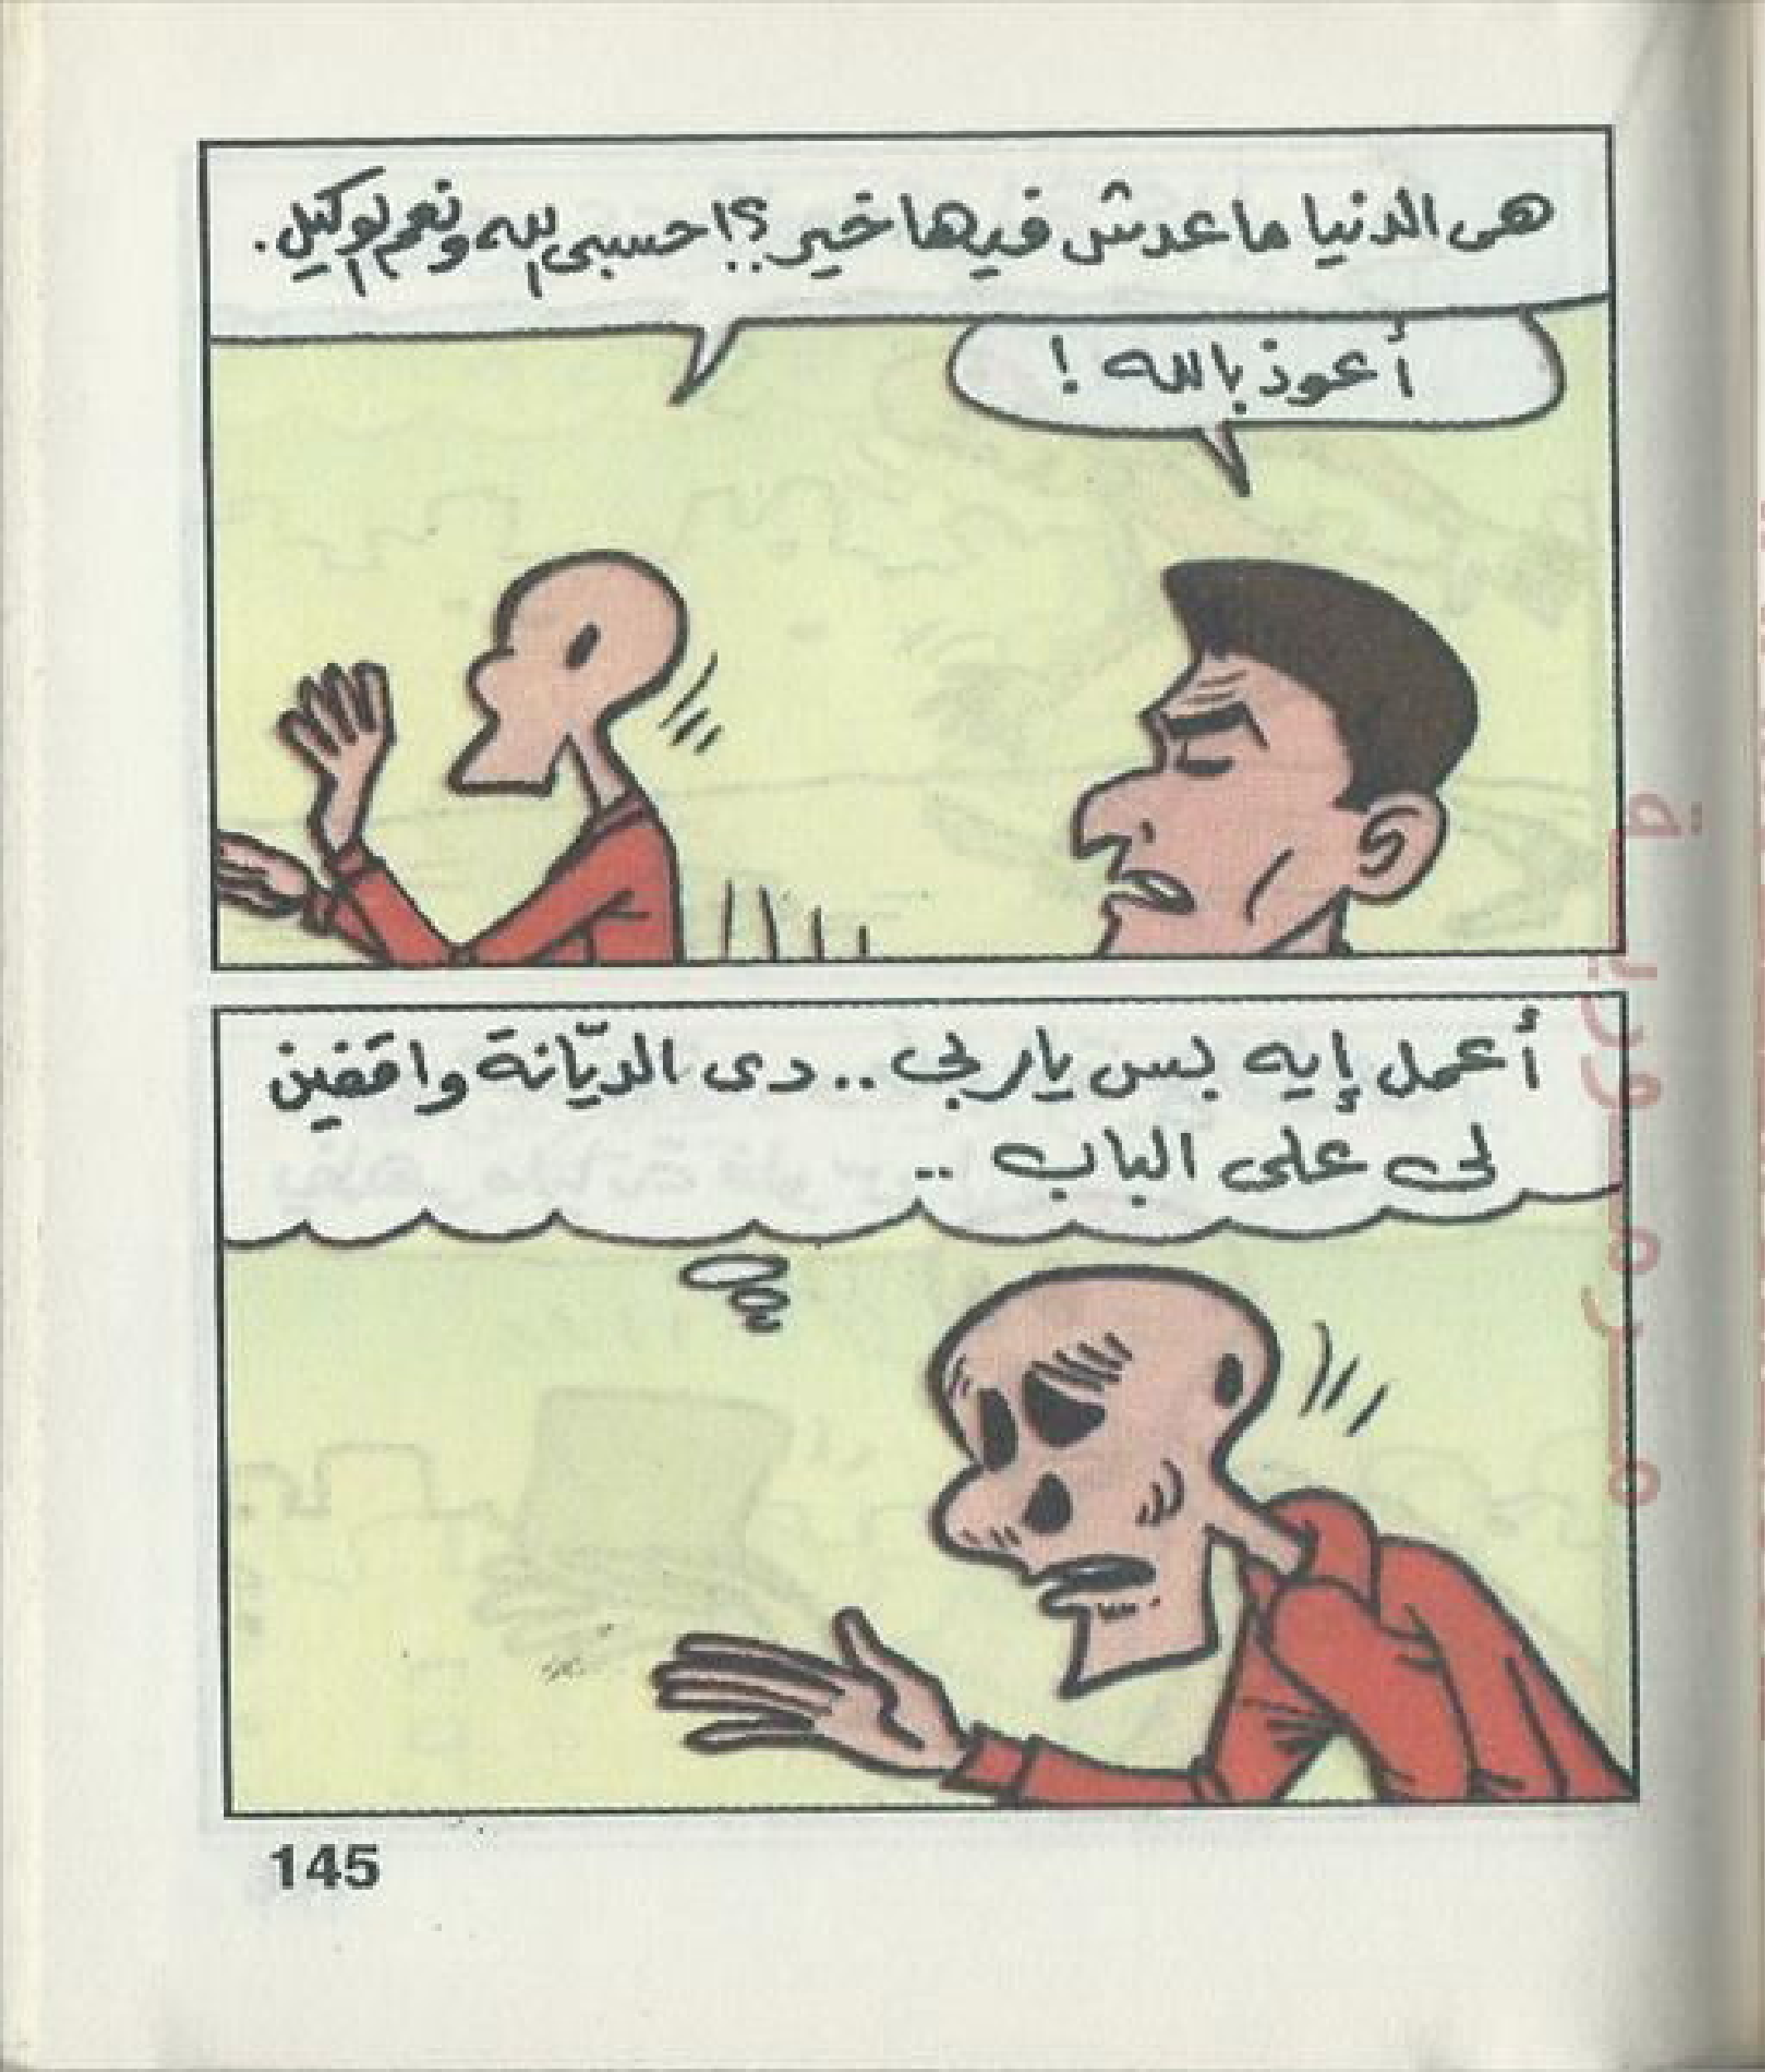 هى الدنيا ماعدش فيها خير؟! حسبى الله ونعم الوكيل.
أعوذ بالله !
أعمل إيه بس يا ربى .. دى الديّانة واقفين
لى على الباب ..
145